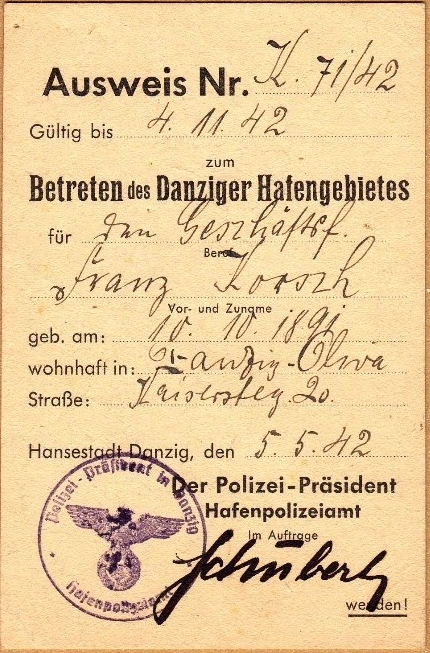 Ausweis Nr. K. 71/42
Gültig bis 4. 11. 42
zum
Betreten des Danziger Hafengebietes
für den Geschäftsf.
Beruf
Franz Korsch
Vor- und Zuname
geb. am: 10. 10. 1891
wohnhaft in: Danzig-Oliva
Straße: Kaisersteg 20.
Hansestadt Danzig, den 5. 5. 42
Der Polizei-Präsident
Hafenpolizeiamt
Im Auftrage
Schubert
werden!
Polizei-Präsident in Danzig
Hafenpolizeiamt